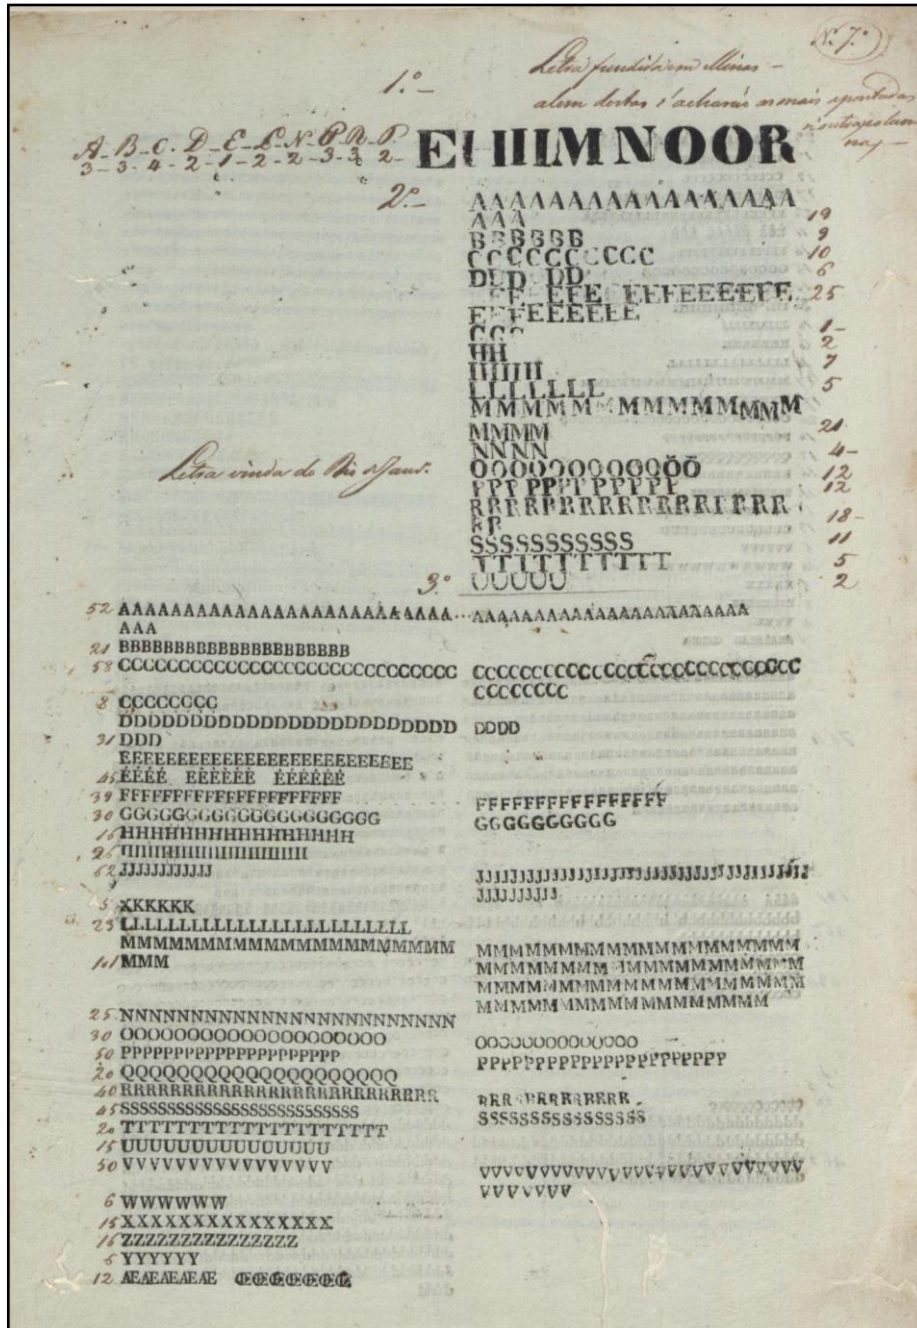 Nº 7º
1º_
Letra fundida em Minas _
alem destas s'acharão as mais apontadas
n'outra
A - B - C - D - E - L - N - P - R - T
3 - 3 - 4 - 2 - 1 - 2 - 2 - 3 - 3 - 2 -
EIIIIM NOOR
2º_
AAAAAAAAAAAAAAAAAA
AAA 19
BBBBBB 9
CCCCCCCCCCC 10
DDD DD 6
EE EEE EEFEEEEFE 25
EEFEEEEEE
CCC 1-
HH 2
IIIIIII 7
LLLLLLL 5
MMMMMMMMMMMMMM
MMMM 21
NNNN 4-
OOOOOOOOOOOÕÕ 12
PPP PPPP PPPPP 12
RRRRRRRRRRRRRRI RRR
RR 18-
SSSSSSSSSSS 11
TTTTTTTTTT 5
UUUUU 2
Letra vinda do Rio de Janrº
3º
52 AAAAAAAAAAAAAAAAAAAAAAAAAA AAAAAAAAAAAAAAAAAAAAAA
AAA
21 BBBBBBBBBBBBBBBBBBBBB
58 CCCCCCCCCCCCCCCCCCCCCCCCCCC CCCCCCCCCCCCCCCCCCCCCCCCCCC
CCCCCCCC
8 CCCCCCCC
DDDDDDDDDDDDDDDDDDDDDDDD DDDD
31 DDD
EEEEEEEEEEEEEEEEEEEEEEEE
45 ÉÉÉÉ EÈEÈÈÈ ÊÊÊÊÊÊ
39 FFFFFFFFFFFFFFFFFFFF FFFFFFFFFFFFFFFFF
30 GGGGGGGGGGGGGGGGGGG GGGGGGGGGG
16 HHHHHHHHHHHHHHHH
26 IIIIIIIIIIIIIIIIIIIIIIIIII
62 JJJJJJJJJJJ JJJJJJJJJJJJJJJJJJJJJJJJJJJJJJJJJJJJJJJJ
JJJJJJJJJJ
5 XKKKKK
23 LLLLLLLLLLLLLLLLLLLLLLL
MMMMMMMMMMMMMMMMMMMMM MMMMMMMMMMMMMMMMMMMM
101 MMM MMMMMMMMMMMMMMMMMMMM
MMMMMMMMMMMMMMMMMMMM
MMMMMMMMMMMMMMMMMM
25 NNNNNNNNNNNNNNNNNNNNNNNN
30 OOOOOOOOOOOOOOOOOOOO OOOOOOOOOOOOO
50 PPPPPPPPPPPPPPPPPPPPP PPPPPPPPPPPPPPPPPPPPPP
20 QQQQQQQQQQQQQQQQQQQQ
40 RRRRRRRRRRRRRRRRRRRRRRR RRR RRRRRRRR
45 SSSSSSSSSSSSSSSSSSSSSSSSSS SSSSSSSSSSSSSSSS
20 TTTTTTTTTTTTTTTTTTTT
15 UUUUUUUUUUUUUUU
50 VVVVVVVVVVVVVVVVV VVVVVVVVVVVVVVVVVVVVVVVVV
VVVVVVV
6 WWWWWW
15 XXXXXXXXXXXXXXX
16 ZZZZZZZZZZZZZZZ
6 YYYYYY
12 ÆÆÆÆÆÆ ŒŒŒŒŒŒŒ